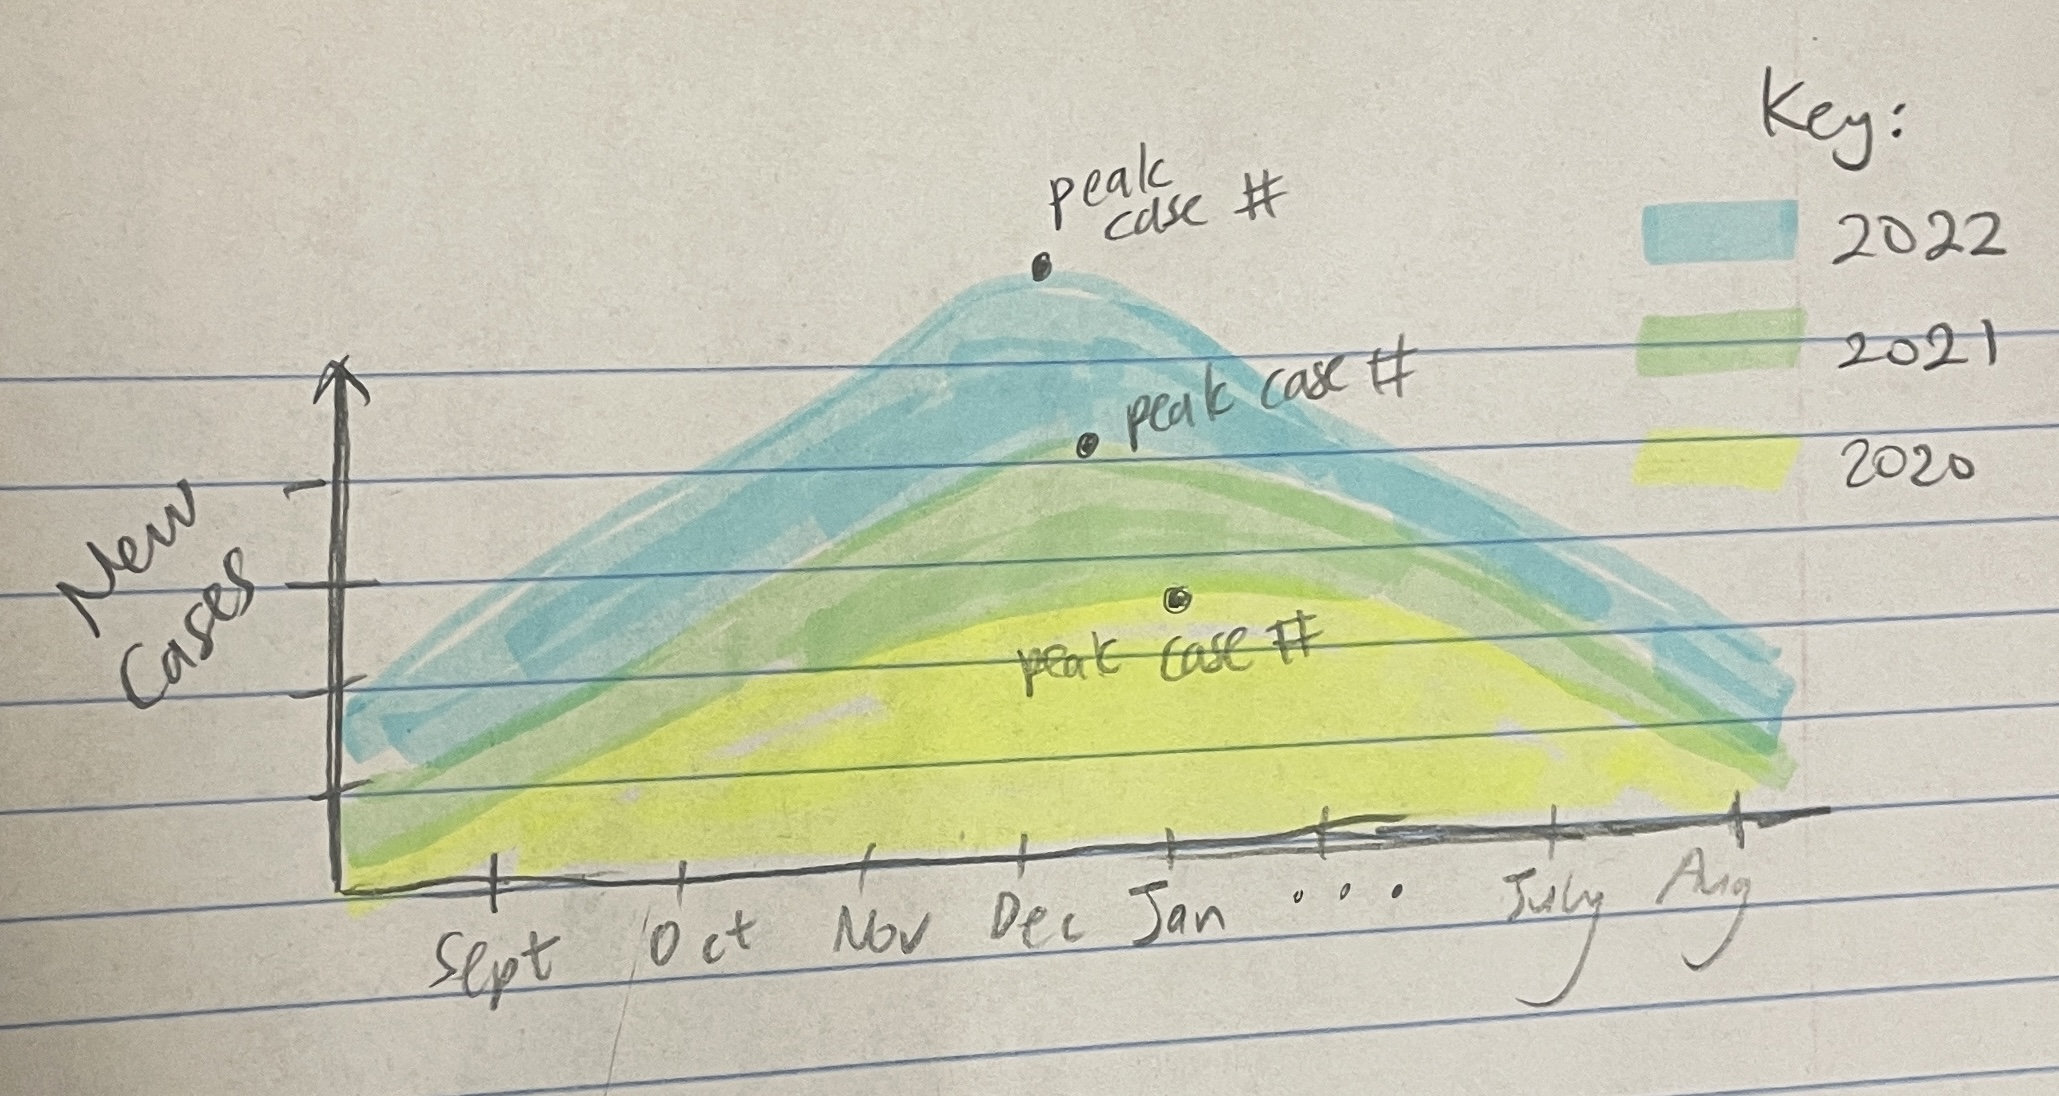 Key:
2022
2021
2020
peak
case #
peak case #
peak case #
New
Cases
Sept Oct Nov Dec Jan ... July Aug